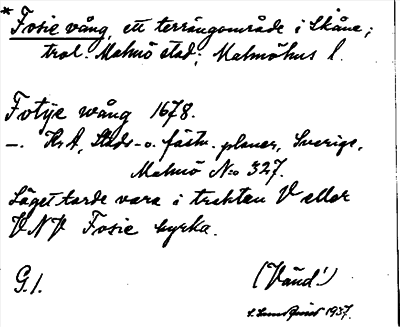 * Fosie vång, ett terrängområde i Skåne;
trol. Malmö stad; Malmöhus l.
Fotye wång 1678.
—. KrA, Stads- o. fästn. planer, Sverige,
Malmö No 327.
Läget torde vara i trakten V eller
VNV Fosie kyrka.
G. 1.
(Vänd!)
1937.